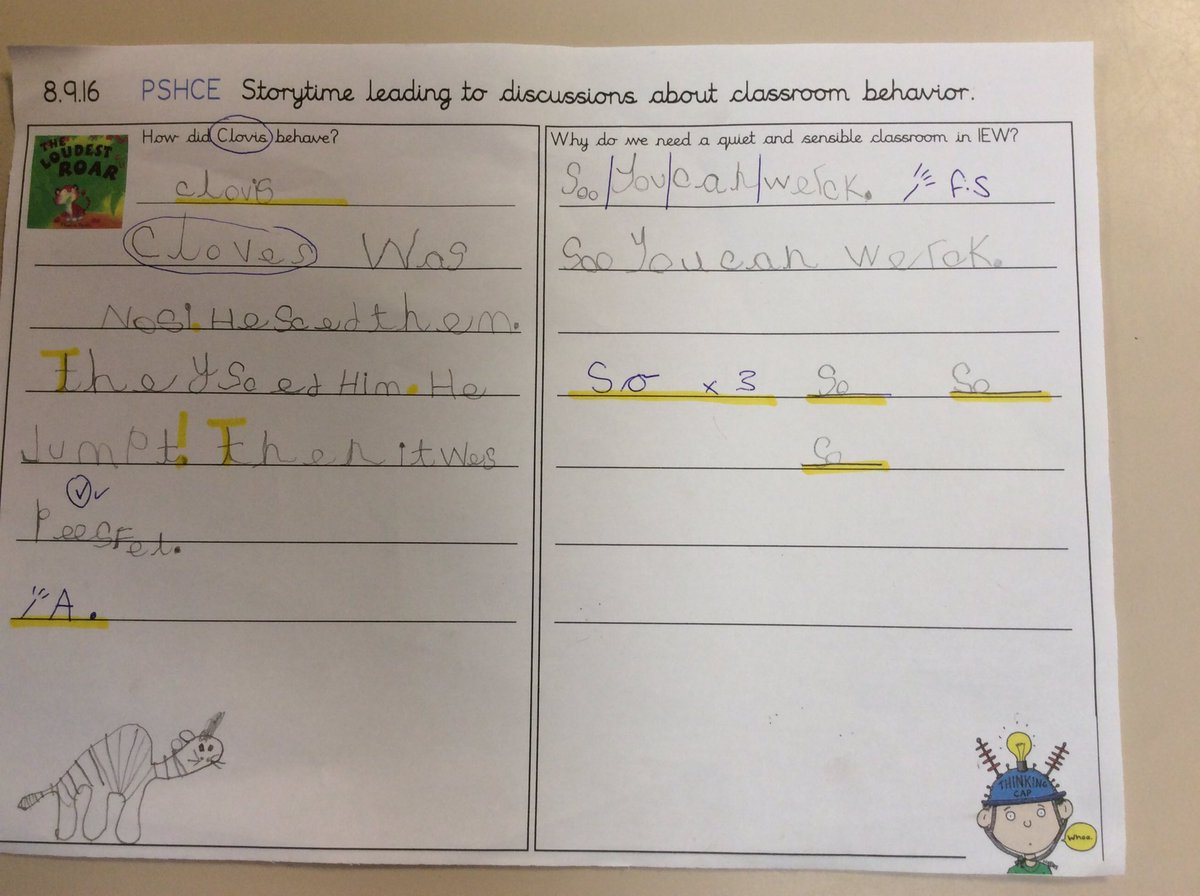 8.9.16 PSHCE Storytime leading to discussions about classroom behavior.
How did Clovis behave?
THE LOUDEST ROAR
clovis
Cloves Was
Nosi. He Sced them.
They Sced Him. He
Jumpt! Then it Wes
PeesFel.
A.
Why do we need a quiet and sensible classroom in IEW?
Soo/You/can/werck. F.S
Soo You can werck.
So x 3 So So
So
THINKING CAP
whoo.